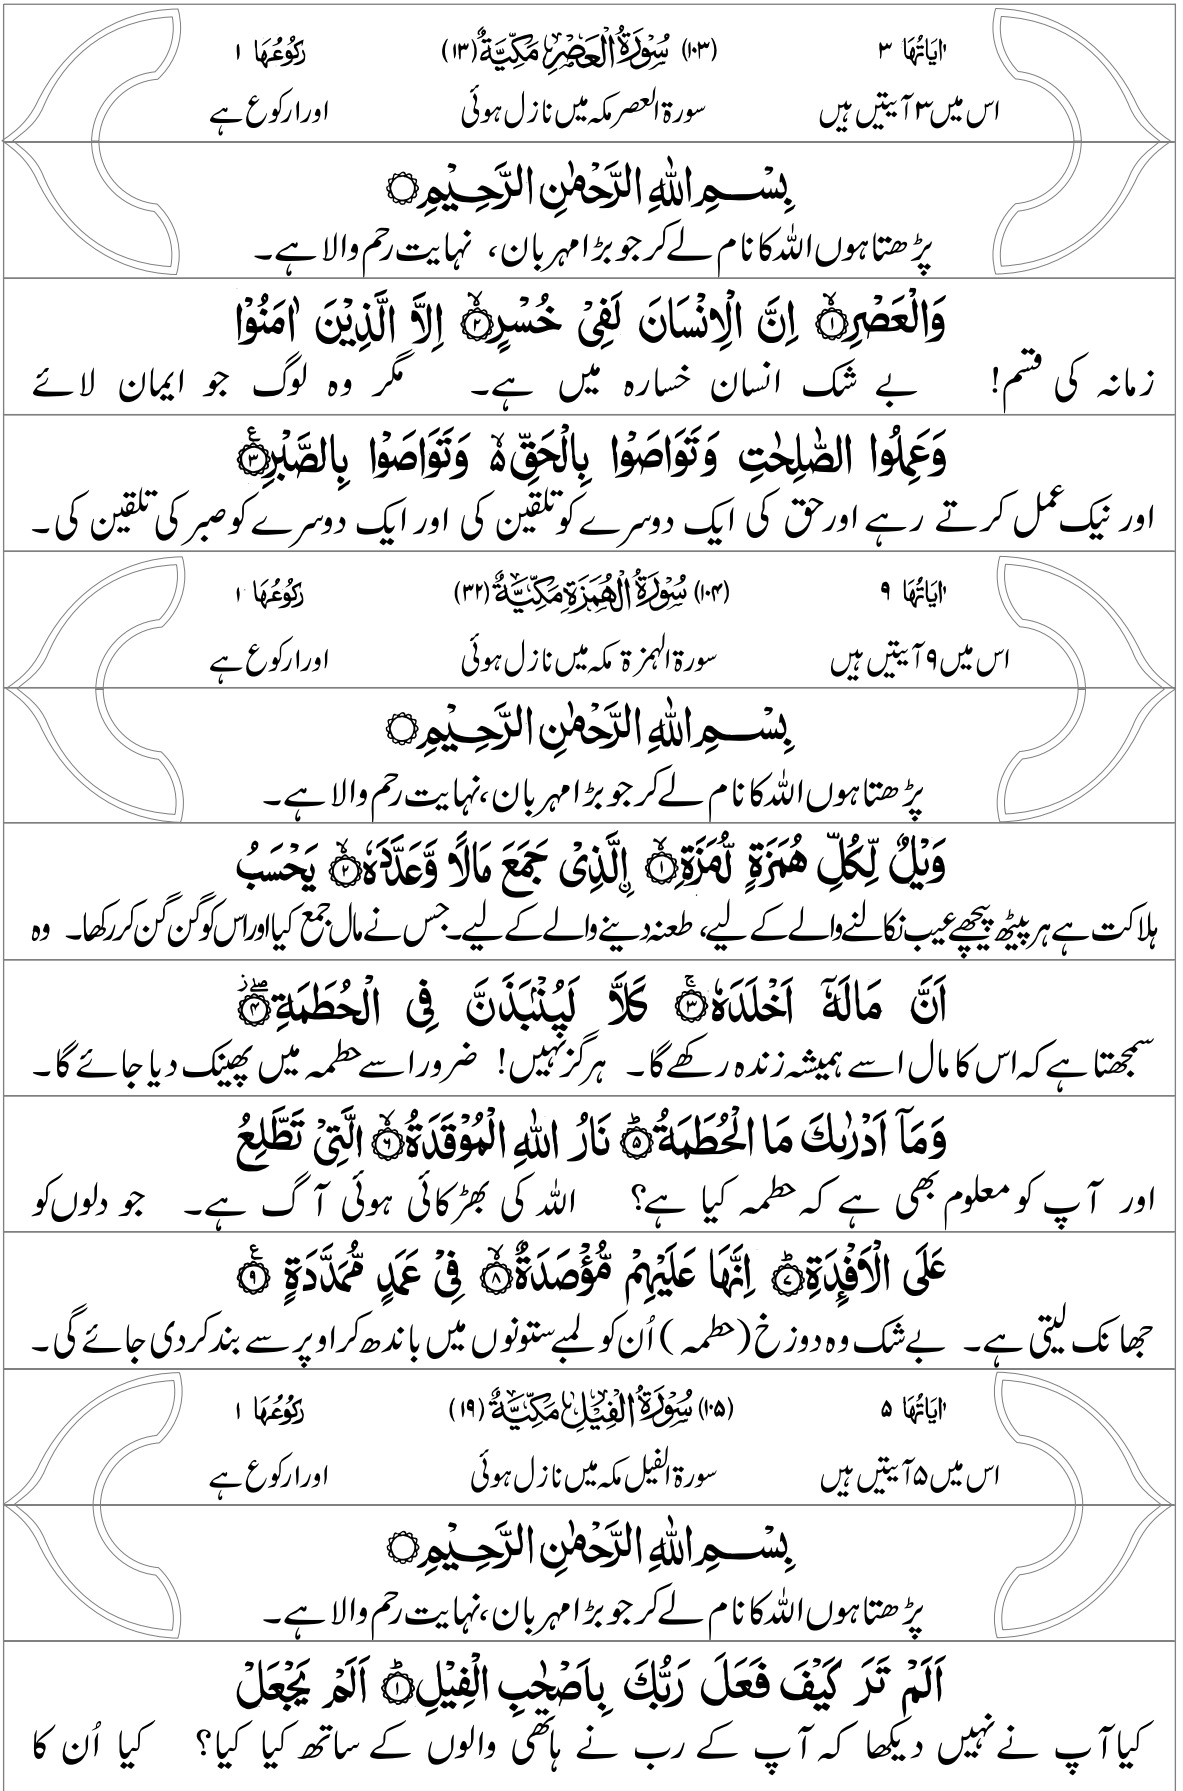 اٰيَاتُهَا ٣ (١٠٣) سُوْرَةُ الْعَصْرِ مَكِّيَّةٌ (١٣) رُكُوْعُهَا ١
اس میں ۳ آیتیں ہیں سورۃ العصر مکہ میں نازل ہوئی اور ۱ رکوع ہے
بِسْمِ اللّٰهِ الرَّحْمٰنِ الرَّحِيْمِ
پڑھتا ہوں اللہ کا نام لے کر جو بڑا مہربان، نہایت رحم والا ہے۔
وَالْعَصْرِۙ‏﴿١﴾ اِنَّ الْاِنْسَانَ لَفِيْ خُسْرٍۙ‏﴿٢﴾ اِلَّا الَّذِيْنَ اٰمَنُوْا
زمانہ کی قسم! بے شک انسان خسارہ میں ہے۔ مگر وہ لوگ جو ایمان لائے
وَعَمِلُوا الصّٰلِحٰتِ وَتَوَاصَوْا بِالْحَقِّ ۙ۬ وَتَوَاصَوْا بِالصَّبْرِ﴿٣﴾ ع
اور نیک عمل کرتے رہے اور حق کی ایک دوسرے کو تلقین کی اور ایک دوسرے کو صبر کی تلقین کی۔
اٰيَاتُهَا ٩ (١٠٤) سُوْرَةُ الْهُمَزَةِ مَكِّيَّةٌ (٣٢) رُكُوْعُهَا ١
اس میں ۹ آیتیں ہیں سورۃ الہمزۃ مکہ میں نازل ہوئی اور ۱ رکوع ہے
بِسْمِ اللّٰهِ الرَّحْمٰنِ الرَّحِيْمِ
پڑھتا ہوں اللہ کا نام لے کر جو بڑا مہربان،نہایت رحم والا ہے۔
وَيْلٌ لِّكُلِّ هُمَزَةٍ لُّمَزَةِۙ‏﴿١﴾ اِۨلَّذِيْ جَمَعَ مَالًا وَّعَدَّدَهٗۙ‏﴿٢﴾ يَحْسَبُ
ہلاکت ہے ہر پیٹھ پیچھے عیب نکالنے والے کے لیے، طعنہ دینے والے کے لیے۔ جس نے مال جمع کیا اور اس کو گن گن کر رکھا۔ وہ
اَنَّ مَالَهٗٓ اَخْلَدَهٗۚ‏﴿٣﴾ كَلَّا لَيُنْۢبَذَنَّ فِي الْحُطَمَةِۖ‏﴿٤﴾
سمجھتا ہے کہ اس کا مال اسے ہمیشہ زندہ رکھے گا۔ ہرگز نہیں! ضرور اسے حطمہ میں پھینک دیا جائے گا۔
وَمَآ اَدْرٰىكَ مَا الْحُطَمَةُؕ‏﴿٥﴾ نَارُ اللّٰهِ الْمُوْقَدَةُۙ‏﴿٦﴾ الَّتِيْ تَطَّلِعُ
اور آپ کو معلوم بھی ہے کہ حطمہ کیا ہے؟ اللہ کی بھڑکائی ہوئی آگ ہے۔ جو دلوں کو
عَلَى الْاَفْـِٕدَةِؕ‏﴿٧﴾ اِنَّهَا عَلَيْهِمْ مُّؤْصَدَةٌۙ‏﴿٨﴾ فِيْ عَمَدٍ مُّمَدَّدَةٍ﴿٩﴾ ع
جھانک لیتی ہے۔ بے شک وہ دوزخ (حطمہ) اُن کو لمبے ستونوں میں باندھ کر اوپر سے بند کر دی جائے گی۔
اٰيَاتُهَا ٥ (١٠٥) سُوْرَةُ الْفِيْلِ مَكِّيَّةٌ (١٩) رُكُوْعُهَا ١
اس میں ۵ آیتیں ہیں سورۃ الفیل مکہ میں نازل ہوئی اور ۱ رکوع ہے
بِسْمِ اللّٰهِ الرَّحْمٰنِ الرَّحِيْمِ
پڑھتا ہوں اللہ کا نام لے کر جو بڑا مہربان،نہایت رحم والا ہے۔
اَلَمْ تَرَ كَيْفَ فَعَلَ رَبُّكَ بِاَصْحٰبِ الْفِيْلِؕ‏﴿١﴾ اَلَمْ يَجْعَلْ
کیا آپ نے نہیں دیکھا کہ آپ کے رب نے ہاتھی والوں کے ساتھ کیا کیا؟ کیا اُن کا